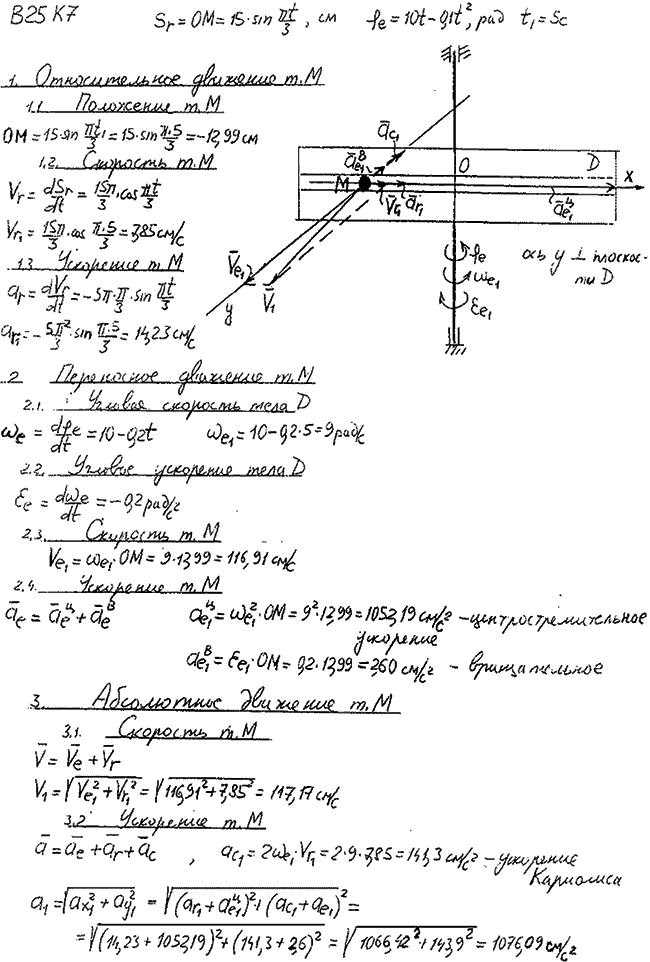 В25 К7 Sr = OM = 15·sin πt/3, см φe = 10t − 0,1t², рад t₁ = 5с
1. Относительное движение т. М
1.1. Положение т. М
OM = 15·sin πt₁/3 = 15·sin π·5/3 = −12,99 см
1.2. Скорость т. М
Vr = dSr/dt = 15π/3·cos πt/3
Vr₁ = 15π/3·cos π·5/3 = 7,85 см/с
1.3. Ускорение т. М
ar = dVr/dt = −5π·π/3·sin πt/3
ar₁ = −5π²/3·sin π·5/3 = 14,23 см/с
āc₁
āe₁ᴮ
D
M
O
x
V̄r₁
ār₁
āe₁ᶣ
V̄e₁
V̄₁
y
φe
ωe₁
εe₁
ось y ⊥ плоскос-
ти D
2 Переносное движение т. М
2.1. Угловая скорость тела D
ωe = dφe/dt = 10 − 0,2t ωe₁ = 10 − 0,2·5 = 9 рад/с
2.2. Угловое ускорение тела D
εe = dωe/dt = −0,2 рад/с²
2.3. Скорость т. М
Ve₁ = ωe₁·OM = 9·12,99 = 116,91 см/с
2.4. Ускорение т. М
āe = āeᶣ + āeᴮ ae₁ᶣ = ωe₁²·OM = 9²·12,99 = 1052,19 см/с² – центростремительное
ускорение
ae₁ᴮ = εe₁·OM = 0,2·12,99 = 2,60 см/с² – вращательное
3. Абсолютное движение т. М
3.1. Скорость т. М
V̄ = V̄e + V̄r
V₁ = √(Ve₁² + Vr₁²) = √(116,91² + 7,85²) = 117,17 см/с
3.2 Ускорение т. М
ā = āe + ār + āc , ac₁ = 2ωe₁·Vr₁ = 2·9·7,85 = 141,3 см/с² – ускорение
Кариолиса
a₁ = √(ax₁² + ay₁²) = √((ar₁ + ae₁ᶣ)² + (ac₁ + ae₁)²) =
= √((14,23 + 1052,19)² + (141,3 + 2,6)²) = √(1066,42² + 143,9²) = 1076,09 см/с²